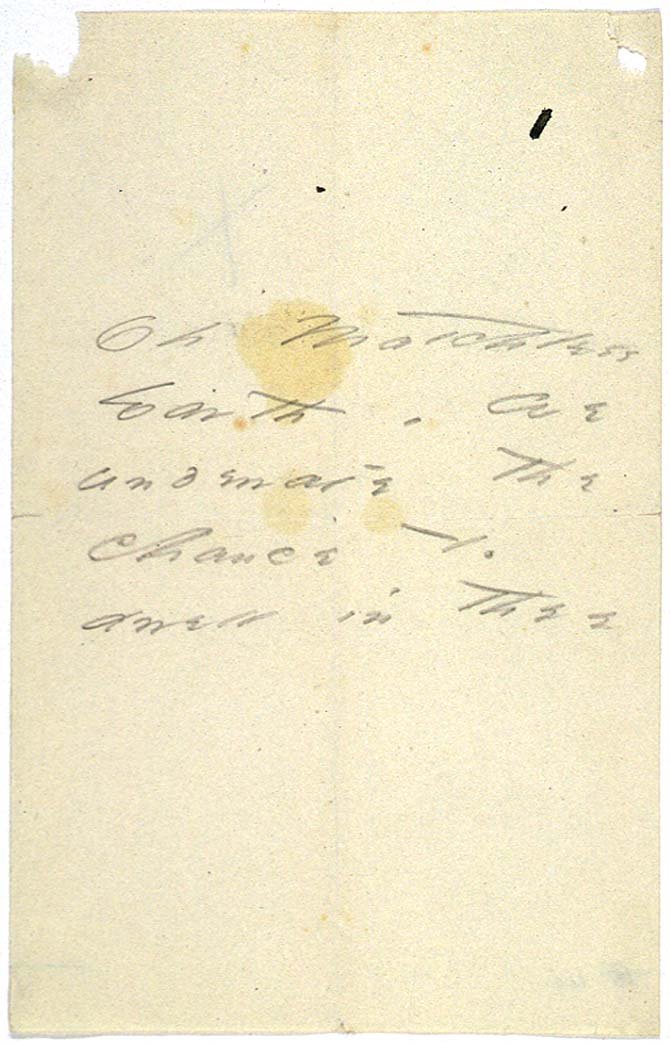 Oh Matchless
Earth - We
underrate the
chance to
dwell in Thee